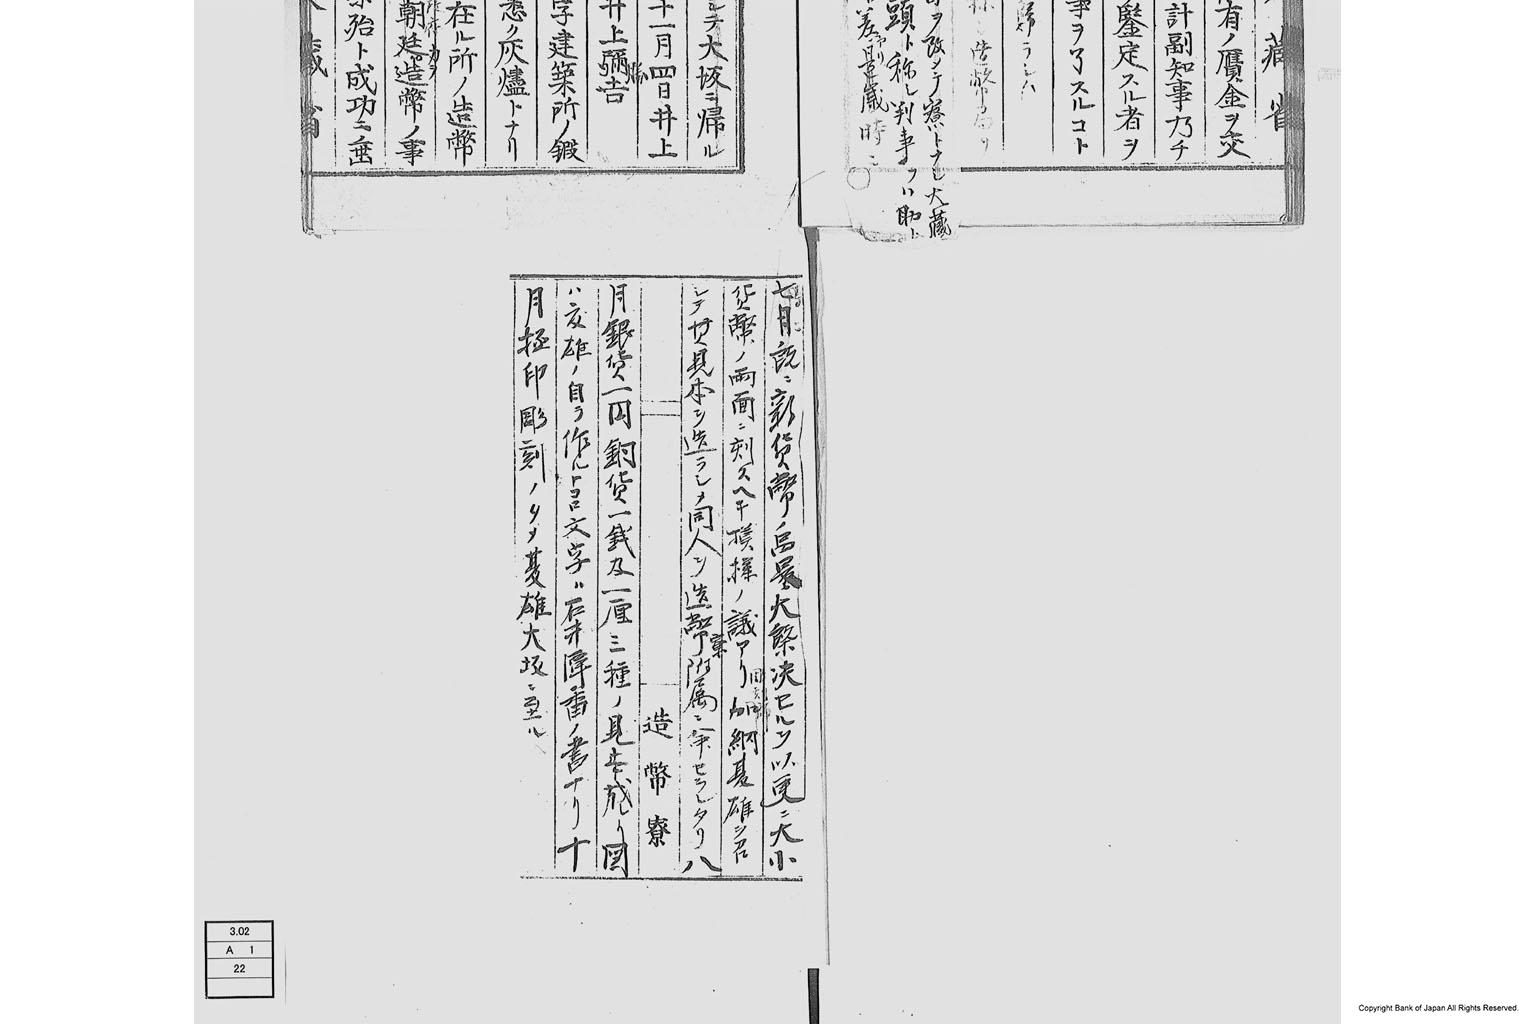 大藏省
有ノ贋金ヲ交
計副知事乃チ
鑒定スル者ヲ
事ヲ了スルコト
歸ラシム
ヲ改メテ寮トナシ大藏
頭ト称シ判事ハ助ト
シテ大坂ニ帰ル
十一月四日井上
井上彌吉
字建築所ノ鍛
悉ク灰燼トナリ
在ル所ノ造幣
朝廷造幣ノ事
殆ト成功ニ垂
大藏省
七月既ニ新貨幣ノ量大槩決セルヲ以更ニ大小
貨幣ノ両面ニ刻スヘキ摸様ノ議アリ加納夏雄ヲ召
シテ其見本ヲ造ラシメ同人ヲ造幣寮附属ニ命セラレタリ八
造幣寮
月銀貨一円銅貨一銭及一厘三種ノ見本成レリ図
ハ夏雄ノ自ラ作ルトコロ文字ハ石井潭香ノ書ナリ十
月極印彫刻ノタメ夏雄大坂ニ至ル
3.02
A 1
22
Copyright Bank of Japan All Rights Reserved.